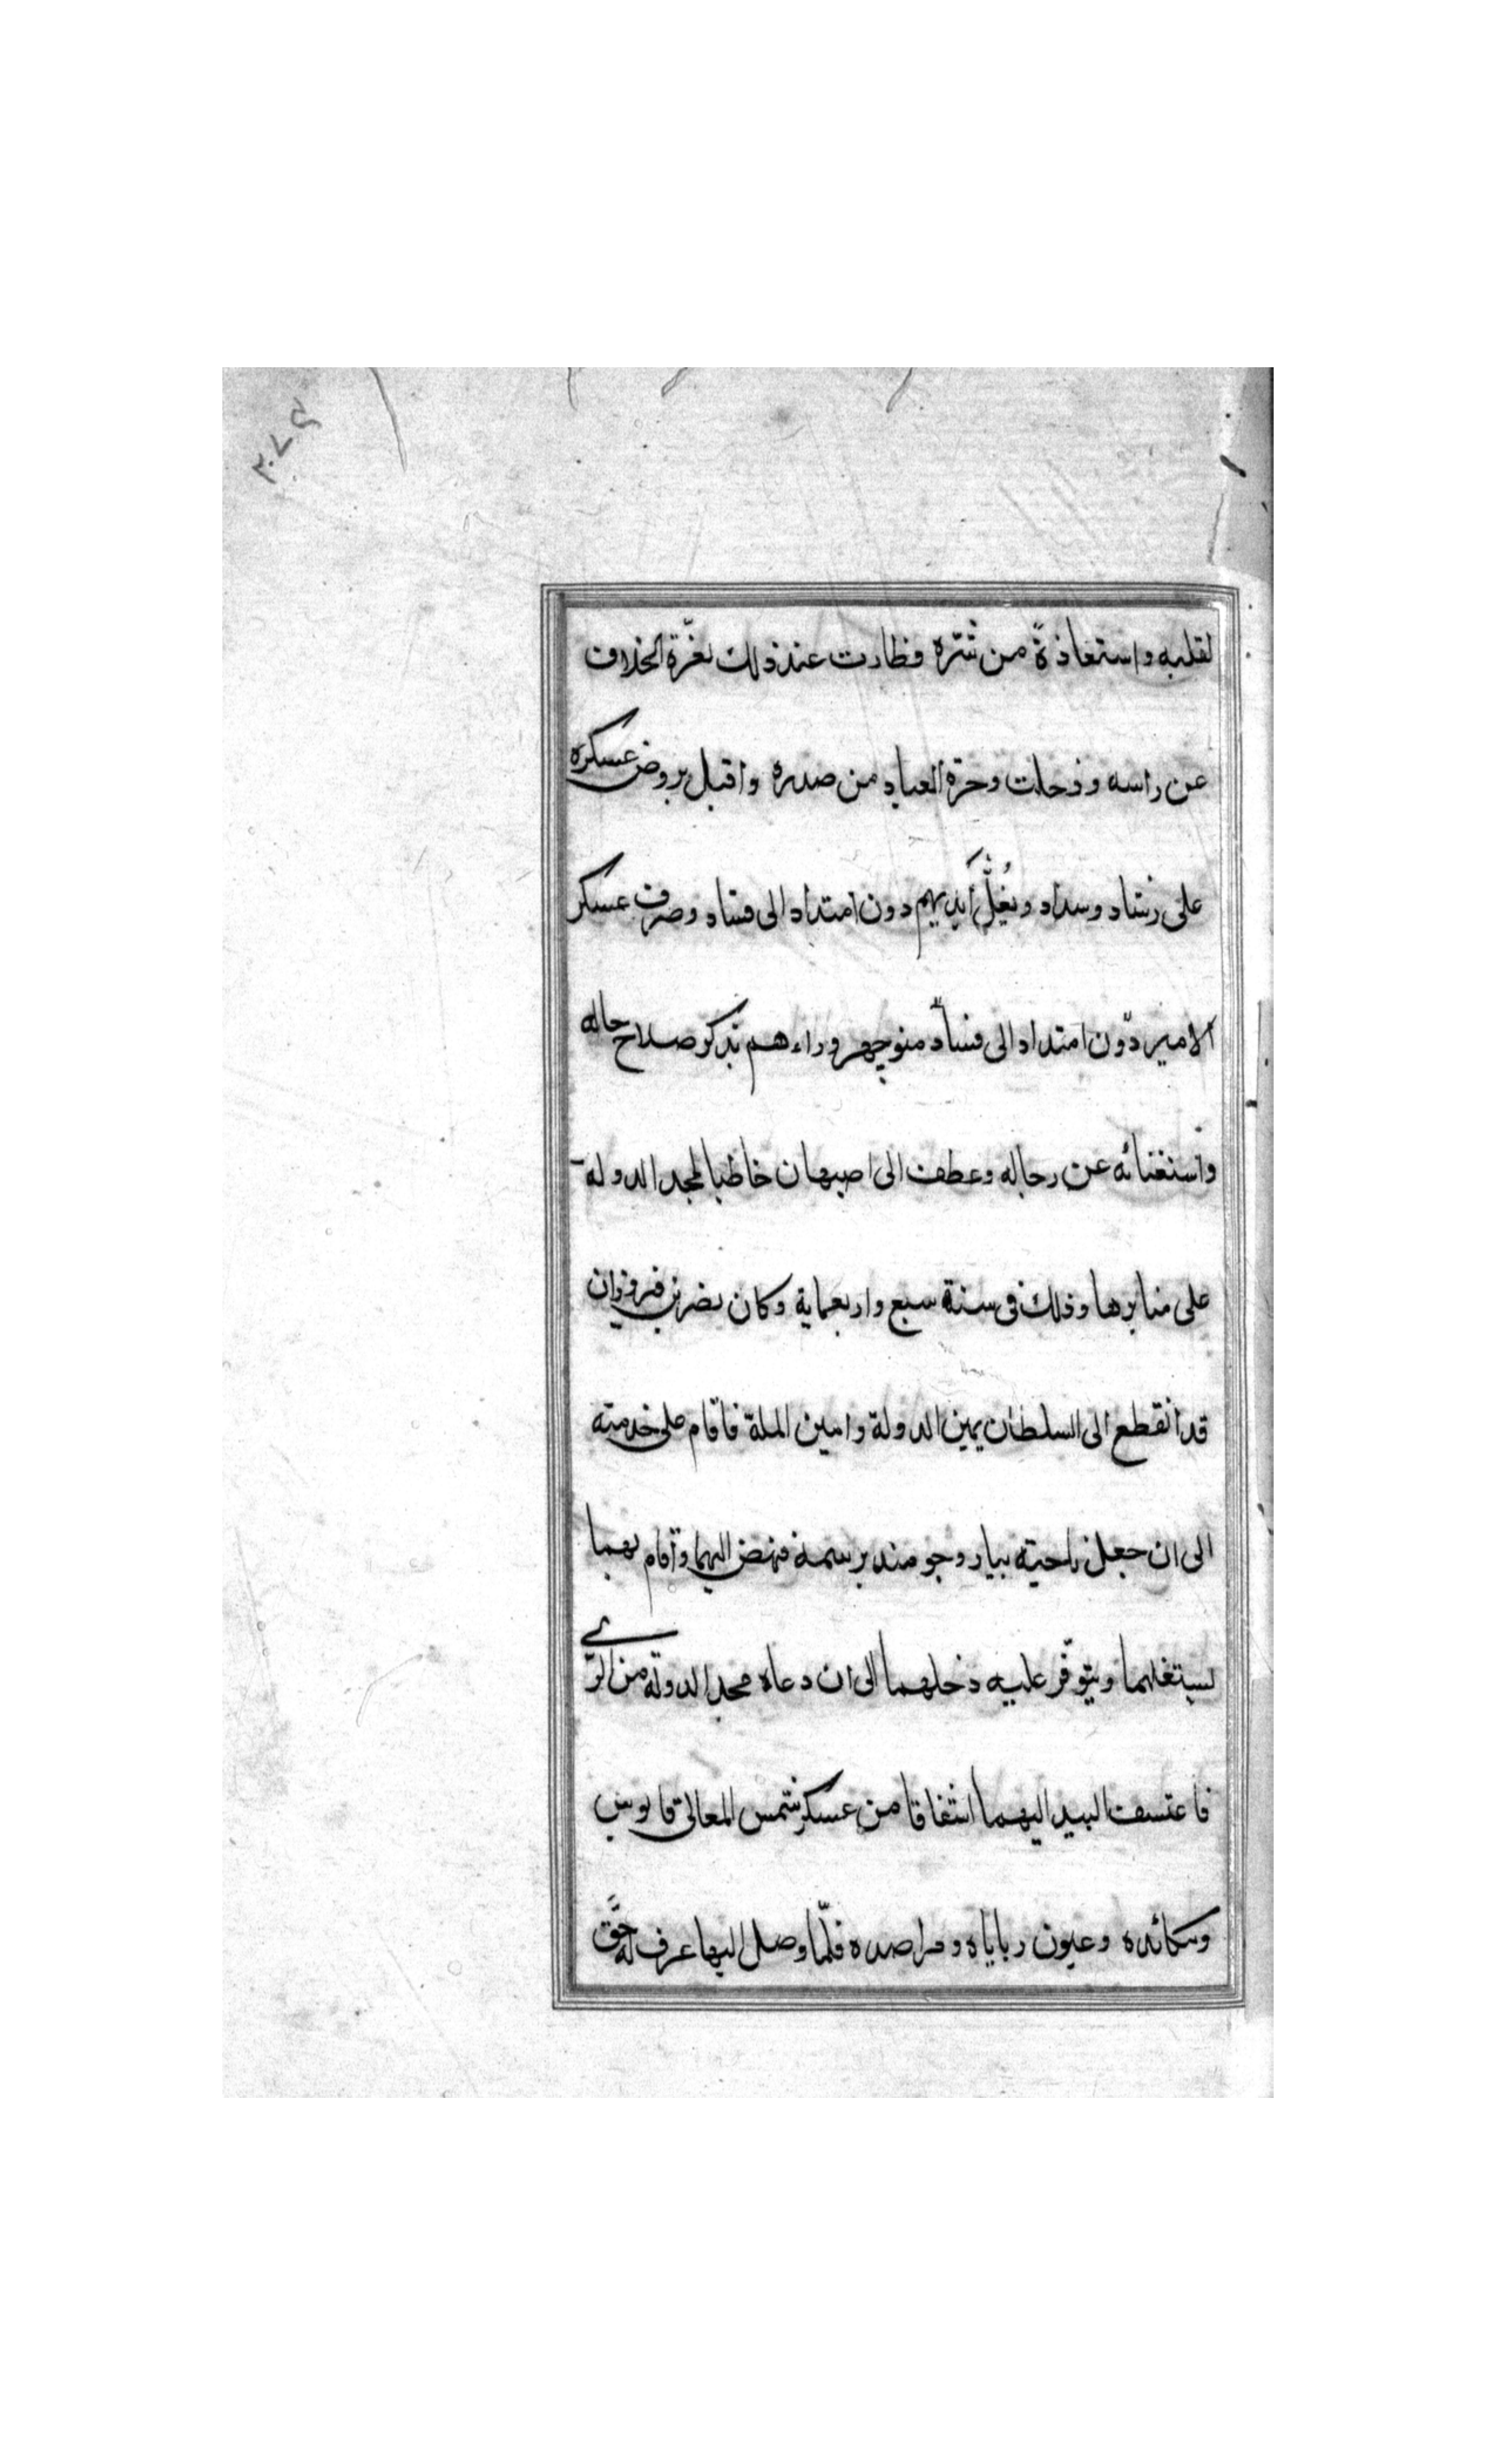 ٣٠٧٤
لقلبه واستعاذةً من شرّه فطارت عند ذلك نعّرة الخلاف
عن راسه وزحلت وحرة العباد من صدره واقبل يروض عسكره
على رشاد وسداد ويُغلُّ ايديهم دون امتداد الى فساد وصرف عسكر
الامير دون امتداد الى فساد منوچهر وراءهم بذكر صلاح حاله
واستغنائه عن رجاله وعطف الى اصبهان خاطبا لمجد الدوله
على منابرها وذلك فى سنة سبع واربعماية وكان نصر بن فيروزان
قد انقطع الى السلطان يمين الدولة وامين الملة فاقام على خدمته
الى ان جعل ناحيته ببيار وجومند برسمه فنهض اليهما واقام بهما
ليستغلهما ويتوفّر عليه دخلهما الى ان دعاه مجد الدولة من الرّى
فاعتسف البيد اليهما اشفاقا من عسكر شمس المعالى قابوس
ومكائده وعيون رباياه ومراصده فلمّا وصل اليها عرف له حقّ